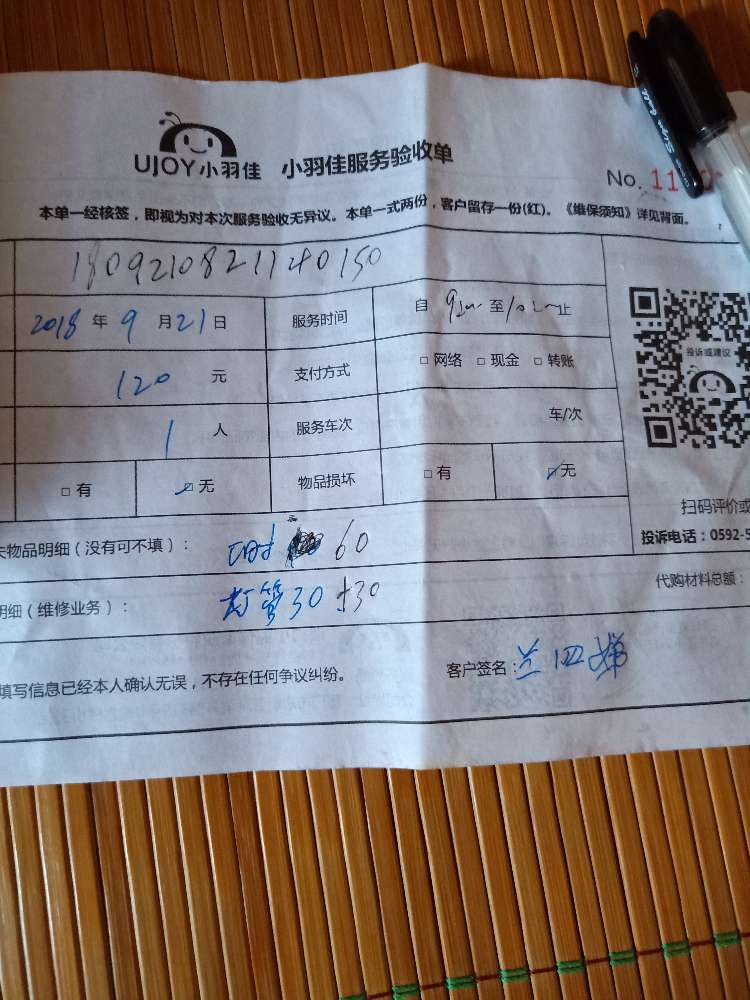 UJOY小羽佳 小羽佳服务验收单
No. 11
本单一经核签，即视为对本次服务验收无异议。本单一式两份，客户留存一份(红)。《维保须知》详见背面。
1809210821140150
2018 年 9 月 21 日 服务时间 自 至 止
投诉或建议
120 元 支付方式 □ 网络 □ 现金 □ 转账
1 人 服务车次 车/次
□ 有 ☑ 无 物品损坏 □ 有 ☑ 无
扫码评价或
物品明细（没有可不填）： 60
投诉电话：0592-5
明细（维修业务）： 灯管30+30
代购材料总额：
填写信息已经本人确认无误，不存在任何争议纠纷。
客户签名：兰四娣